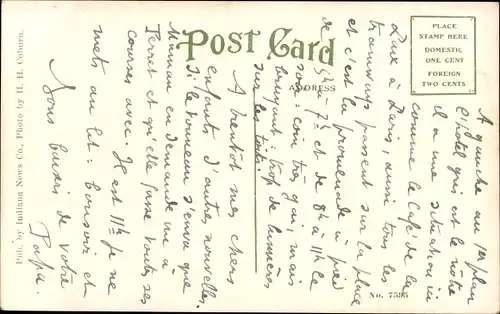 POST CARD
ADDRESS
PLACE
STAMP HERE
DOMESTIC
ONE CENT
FOREIGN
TWO CENTS
Pub. by Indiana News Co., Photo by H. H. Coburn.
No. 7595
A gauche au 1er plan
l'hôtel gris est le nôtre
il a une situation ici
comme le Café de la
Paix à Paris, aussi tous les
tramways passent sur la place
et c'est la promenade à pied
de 5h à 7h et de 8h à 11h le
soir : coin très gai, mais
bruyant : trop de lumières
sur les toits.
A bientôt mes chers
enfants d'autres nouvelles.
Si le tonneau s'envoie que
Maman en demande un à
Ferret et qu'elle fasse toutes ses
courses avec. Il est 11h je me
mets au lit : bonsoir et
bons baisers de votre
Papa.